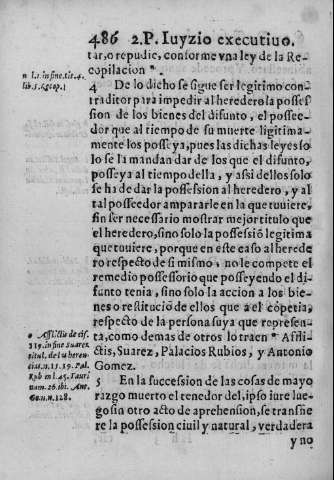 486 2.P. Iuyzio executiuo.
tar, o repudie, conforme vna ley de la Re-
copilacion n.
n l.1. in fine. tit. 4.
lib. 5. Recop.
4 De lo dicho se sigue ser legitimo con-
traditor para impedir al heredero la posses
sion de los bienes del difunto, el possee-
dor que al tiempo de su muerte ligitima-
mente los posseya, pues las dichas leyes so
lo se la mandan dar de los que el difunto,
posseya al tiempo della, y assi dellos solo
se ha de dar la possession al heredero, y al
tal posseedor ampararle en la que tuuiere,
sin ser necessario mostrar mejor titulo que
el heredero, sino solo la possessiō legitima
que touiere, porque en este caso al herede
ro respecto de si mismo, no le compete el
remedio possessorio que posseyendo el di-
funto tenia, sino solo la accion a los bie-
nes o restituciō de ellos que a el cōpetia,
respecto de la persona suya que represen-
ta, como demas de otros lo traen o Afli-
ctis, Suarez, Palacios Rubios, y Antonio
Gomez.
o Afflictis de cis.
319. in fine Suarez
titul. de la heren-
cia n. 15.19. Pal.
Rub in l. 45. Tauri
num. 26. ibi. Ant.
Go. n. 128.
5 En la succession de las cosas de mayo
razgo muerto el tenedor del, ipso iure lue-
go sin otro acto de aprehension, se transfie
re la possession ciuil y natural, verdadera
y no